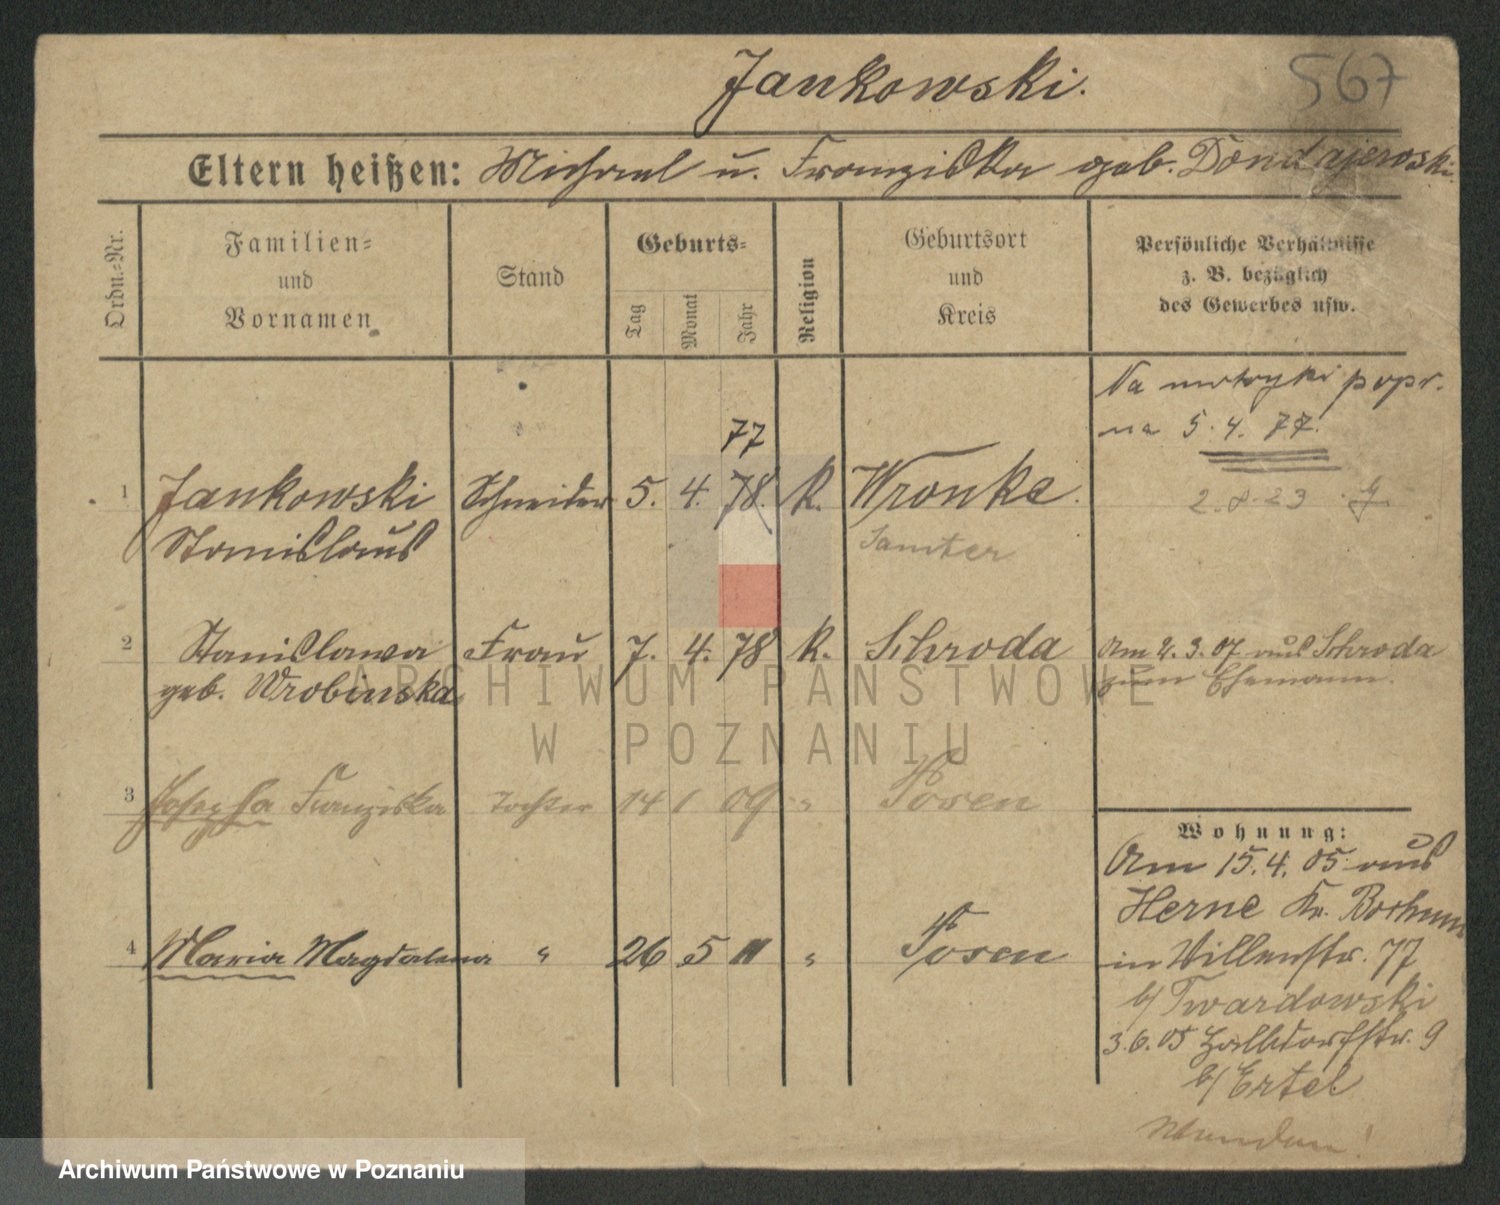 567
Jankowski.
Eltern heißen: Michael u. Franziska geb. Dondajewski.
Ordn.=Nr.
Familien=
und
Vornamen
Stand
Geburts=
Tag
Monat
Jahr
Religion
Geburtsort
und
Kreis
Persönliche Verhältnisse
z. B. bezüglich
des Gewerbes usw.
Na metryki popr.
na 5.4.77.
2.8.23
77
1 Jankowski Schneider 5. 4. 78. k. Wronke.
Stanislaus Samter
2 Stanislawa Frau 7. 4. 78 k. Schroda Am 2.3.07 aus Schroda
geb. Wrobinska zum Ehemann.
3 Josepha Franziska Tochter 14 1 09 " Posen
4 Maria Magdalena " 26 5 11 " Posen
Wohnung:
Am 15.4.05 aus
Herne Kr. Bochum
in Villenstr. 77
b/ Twardowski
3.6.05 Halbdorfstr. 9
b/ Ertel
ARCHIWUM PAŃSTWOWE
W POZNANIU
Archiwum Państwowe w Poznaniu